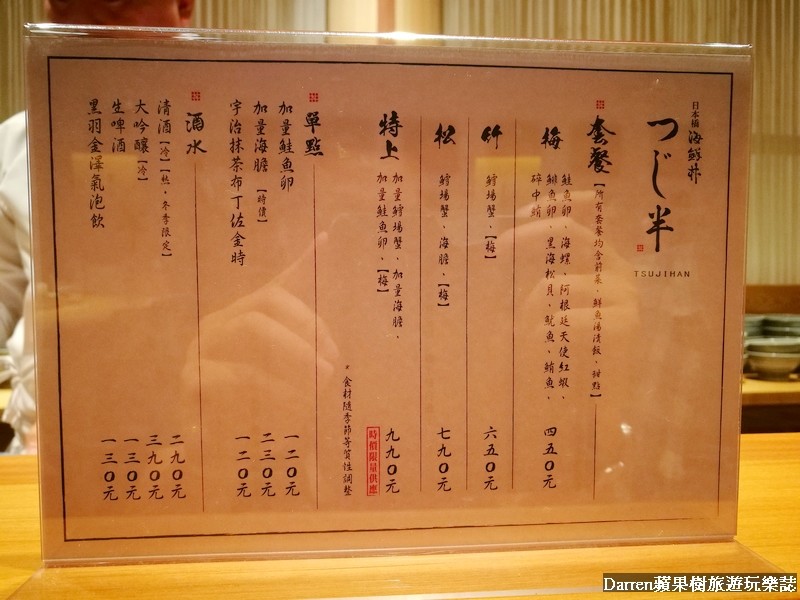 日本橋海鮮丼
つじ半
TSUJIHAN
套餐【所有套餐均含前菜、鮮魚湯漬飯、甜點】
梅 鮭魚卵、海螺、阿根廷天使紅蝦、
鯡魚卵、黑海松貝、魷魚、鮪魚、
碎中鮪
四五0元
竹 鱈場蟹、【梅】 六五0元
松 鱈場蟹、海膽、【梅】 七九0元
特上 加量鱈場蟹、加量海膽、
加量鮭魚卵、【梅】
九九0元
時價限量供應
*食材隨季節等質性調整
單點
加量鮭魚卵 一二0元
加量海膽【時價】 二三0元
宇治抹茶布丁佐金時 一二0元
酒水
清酒【冷】【熱,冬季限定】 二九0元
大吟釀【冷】 三九0元
生啤酒 一三0元
黑羽金澤氣泡飲 一三0元
Darren蘋果樹旅遊玩樂誌